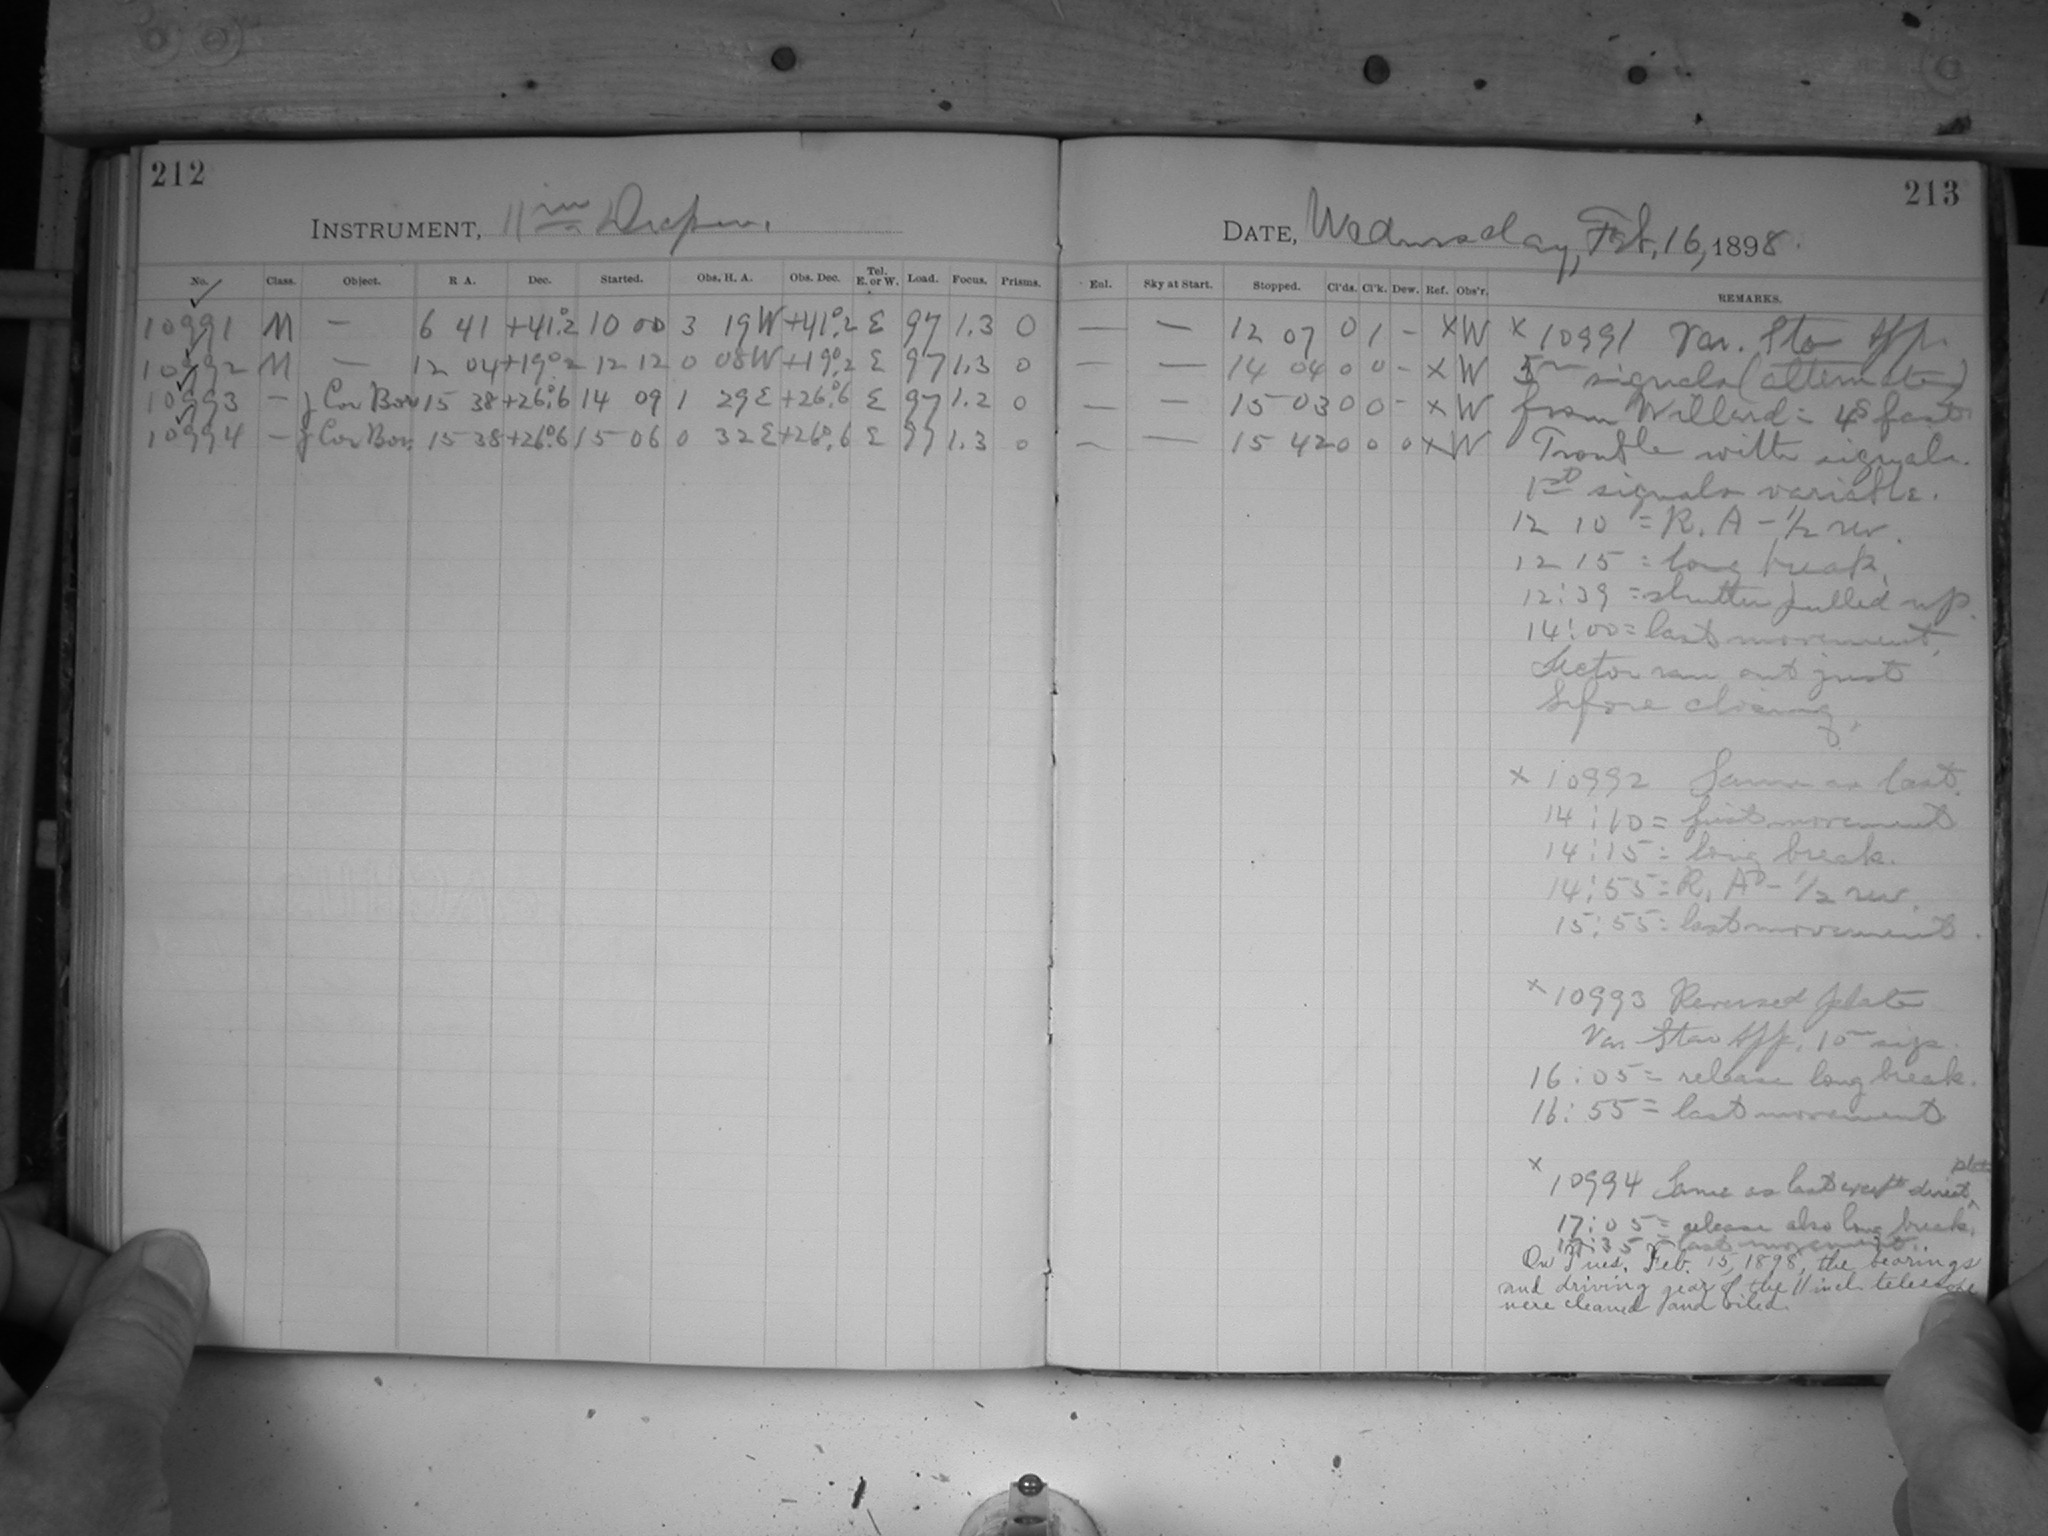 212
INSTRUMENT, 11 in Draper.
No. Class. Object. R A. Dec. Started. Obs. H. A. Obs. Dec. Tel. E. or W. Load. Focus. Prisms.
10991 M — 6 41 +41°.2 10 00 3 19 W +41°.2 E 97 1.3 0
10992 M — 12 04 +19°.2 12 12 0 08 W +19°.2 E 97 1.3 0
10993 — γ Cor Bor 15 38 +26°.6 14 09 1 29 E +26°.6 E 97 1.2 0
10994 — γ Cor Bor. 15 38 +26°.6 15 06 0 32 E +26°.6 E 97 1.3 0
213
DATE, Wednesday, Feb. 16, 1898.
Enl. Sky at Start. Stopped. Cl'ds. Cl'k. Dew. Ref. Obs'r. REMARKS.
— — 12 07 0 1 - X W x 10991 Var. Star App.
— — 14 04 0 0 - X W 5m signals (alternates)
— — 15 03 0 0 - X W from Willard = 4s fast
— — 15 42 0 0 0 X W Trouble with signals.
1st signals variable.
12 10 = R. A - 1/2 rev.
12 15 = long break.
12:39 = shutter pulled up.
14:00 = last movement.
Sector ran out just
before closing.
x 10992 Same as last.
14:10 = first movement
14:15 = long break.
14:55 = R. A - 1/2 rev.
15:55 = last movement.
x 10993 Reversed plate
Var Star App. 1m sigs.
16:05 = release long break.
16:55 = last movement
x 10994 Same as last except direct plate
17:05 = release also long break.
17:35 = last movement.
On Tues. Feb. 15, 1898, the bearings
and driving gear of the 11 inch telescope
were cleaned and oiled.